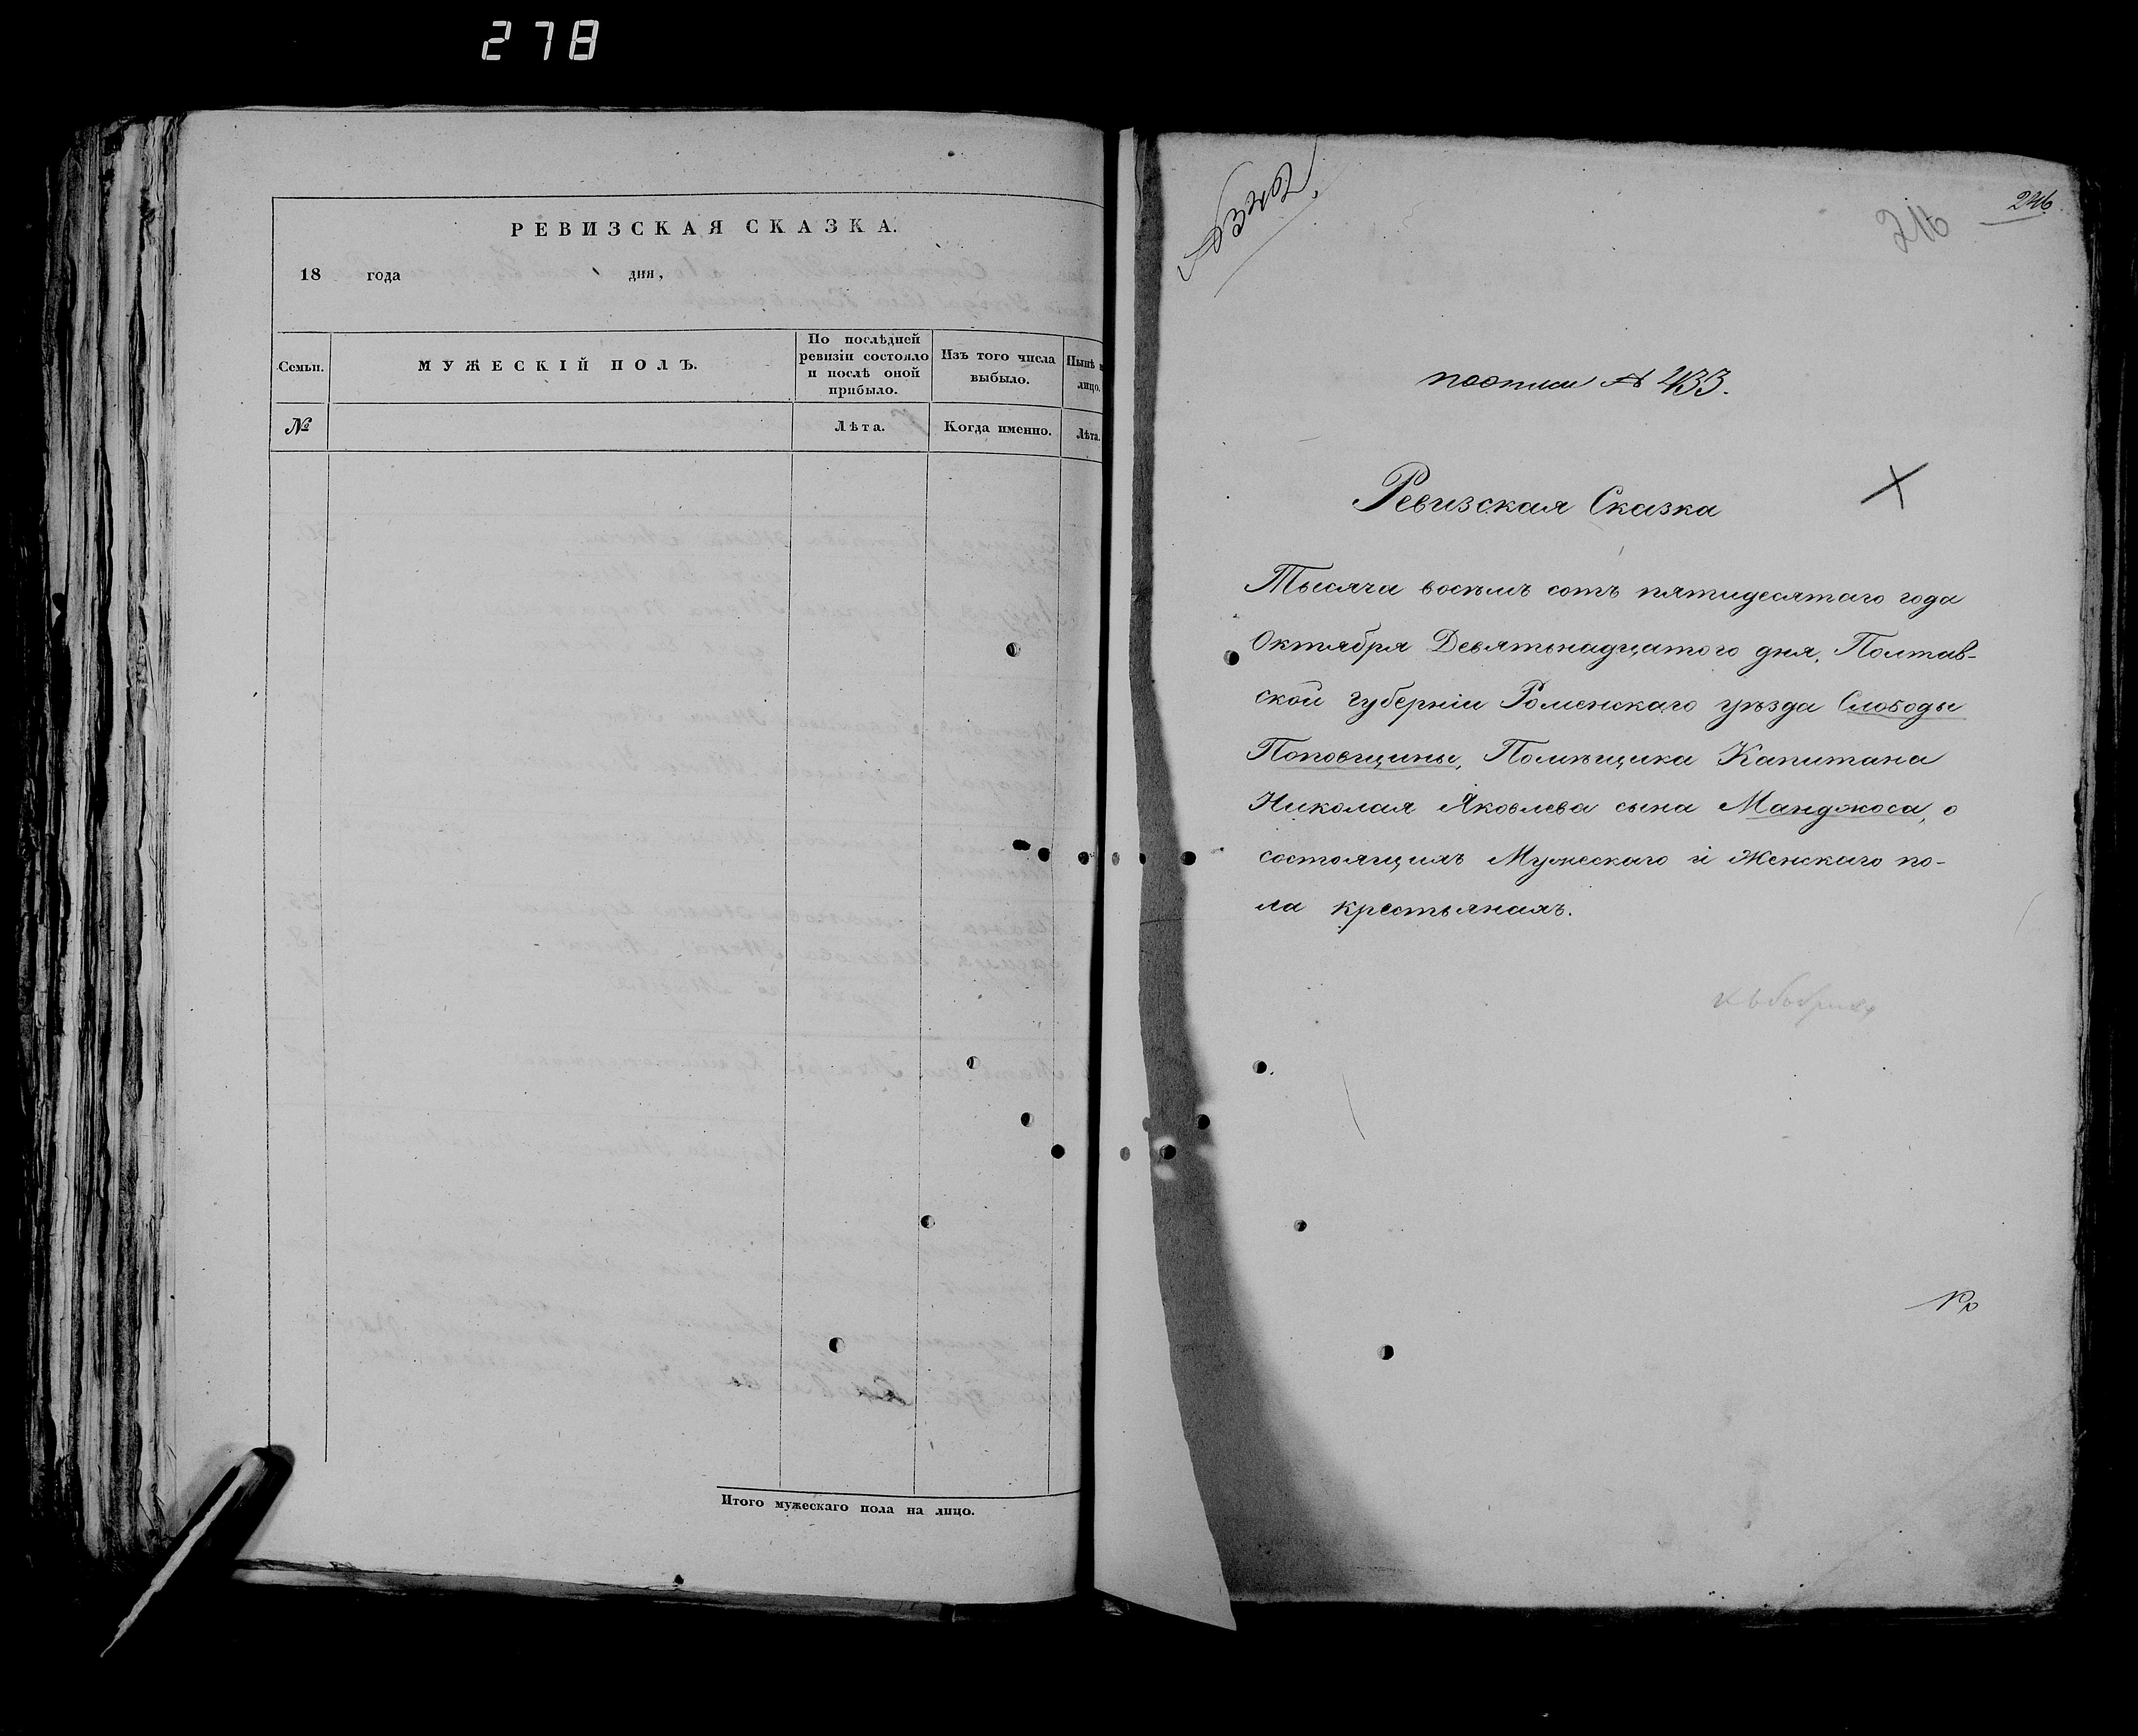 278
РЕВИЗСКАЯ СКАЗКА.
18 года дня,
Семьи.
МУЖЕСКІЙ ПОЛЪ.
По послѣдней
ревизіи состояло
и послѣ оной
прибыло.
Изъ того числа
выбыло.
Нынѣ н
лицо.
№
Лѣта.
Когда именно.
Лѣта.
Итого мужескаго пола на лицо.
246
216
№ 433.
Ревизская Сказка
Тысяча восѣмъ сотъ пятидесятаго года
Октября Девятьнадцатого дня, Полтав-
ской губерніи Роменскаго уѣзда Слободы
Поповщины, Помѣщика Капитана
Николая Яковлева сына Манджоса, о
состоящихъ Мужескаго и Женскаго по-
ла крестьянахъ.